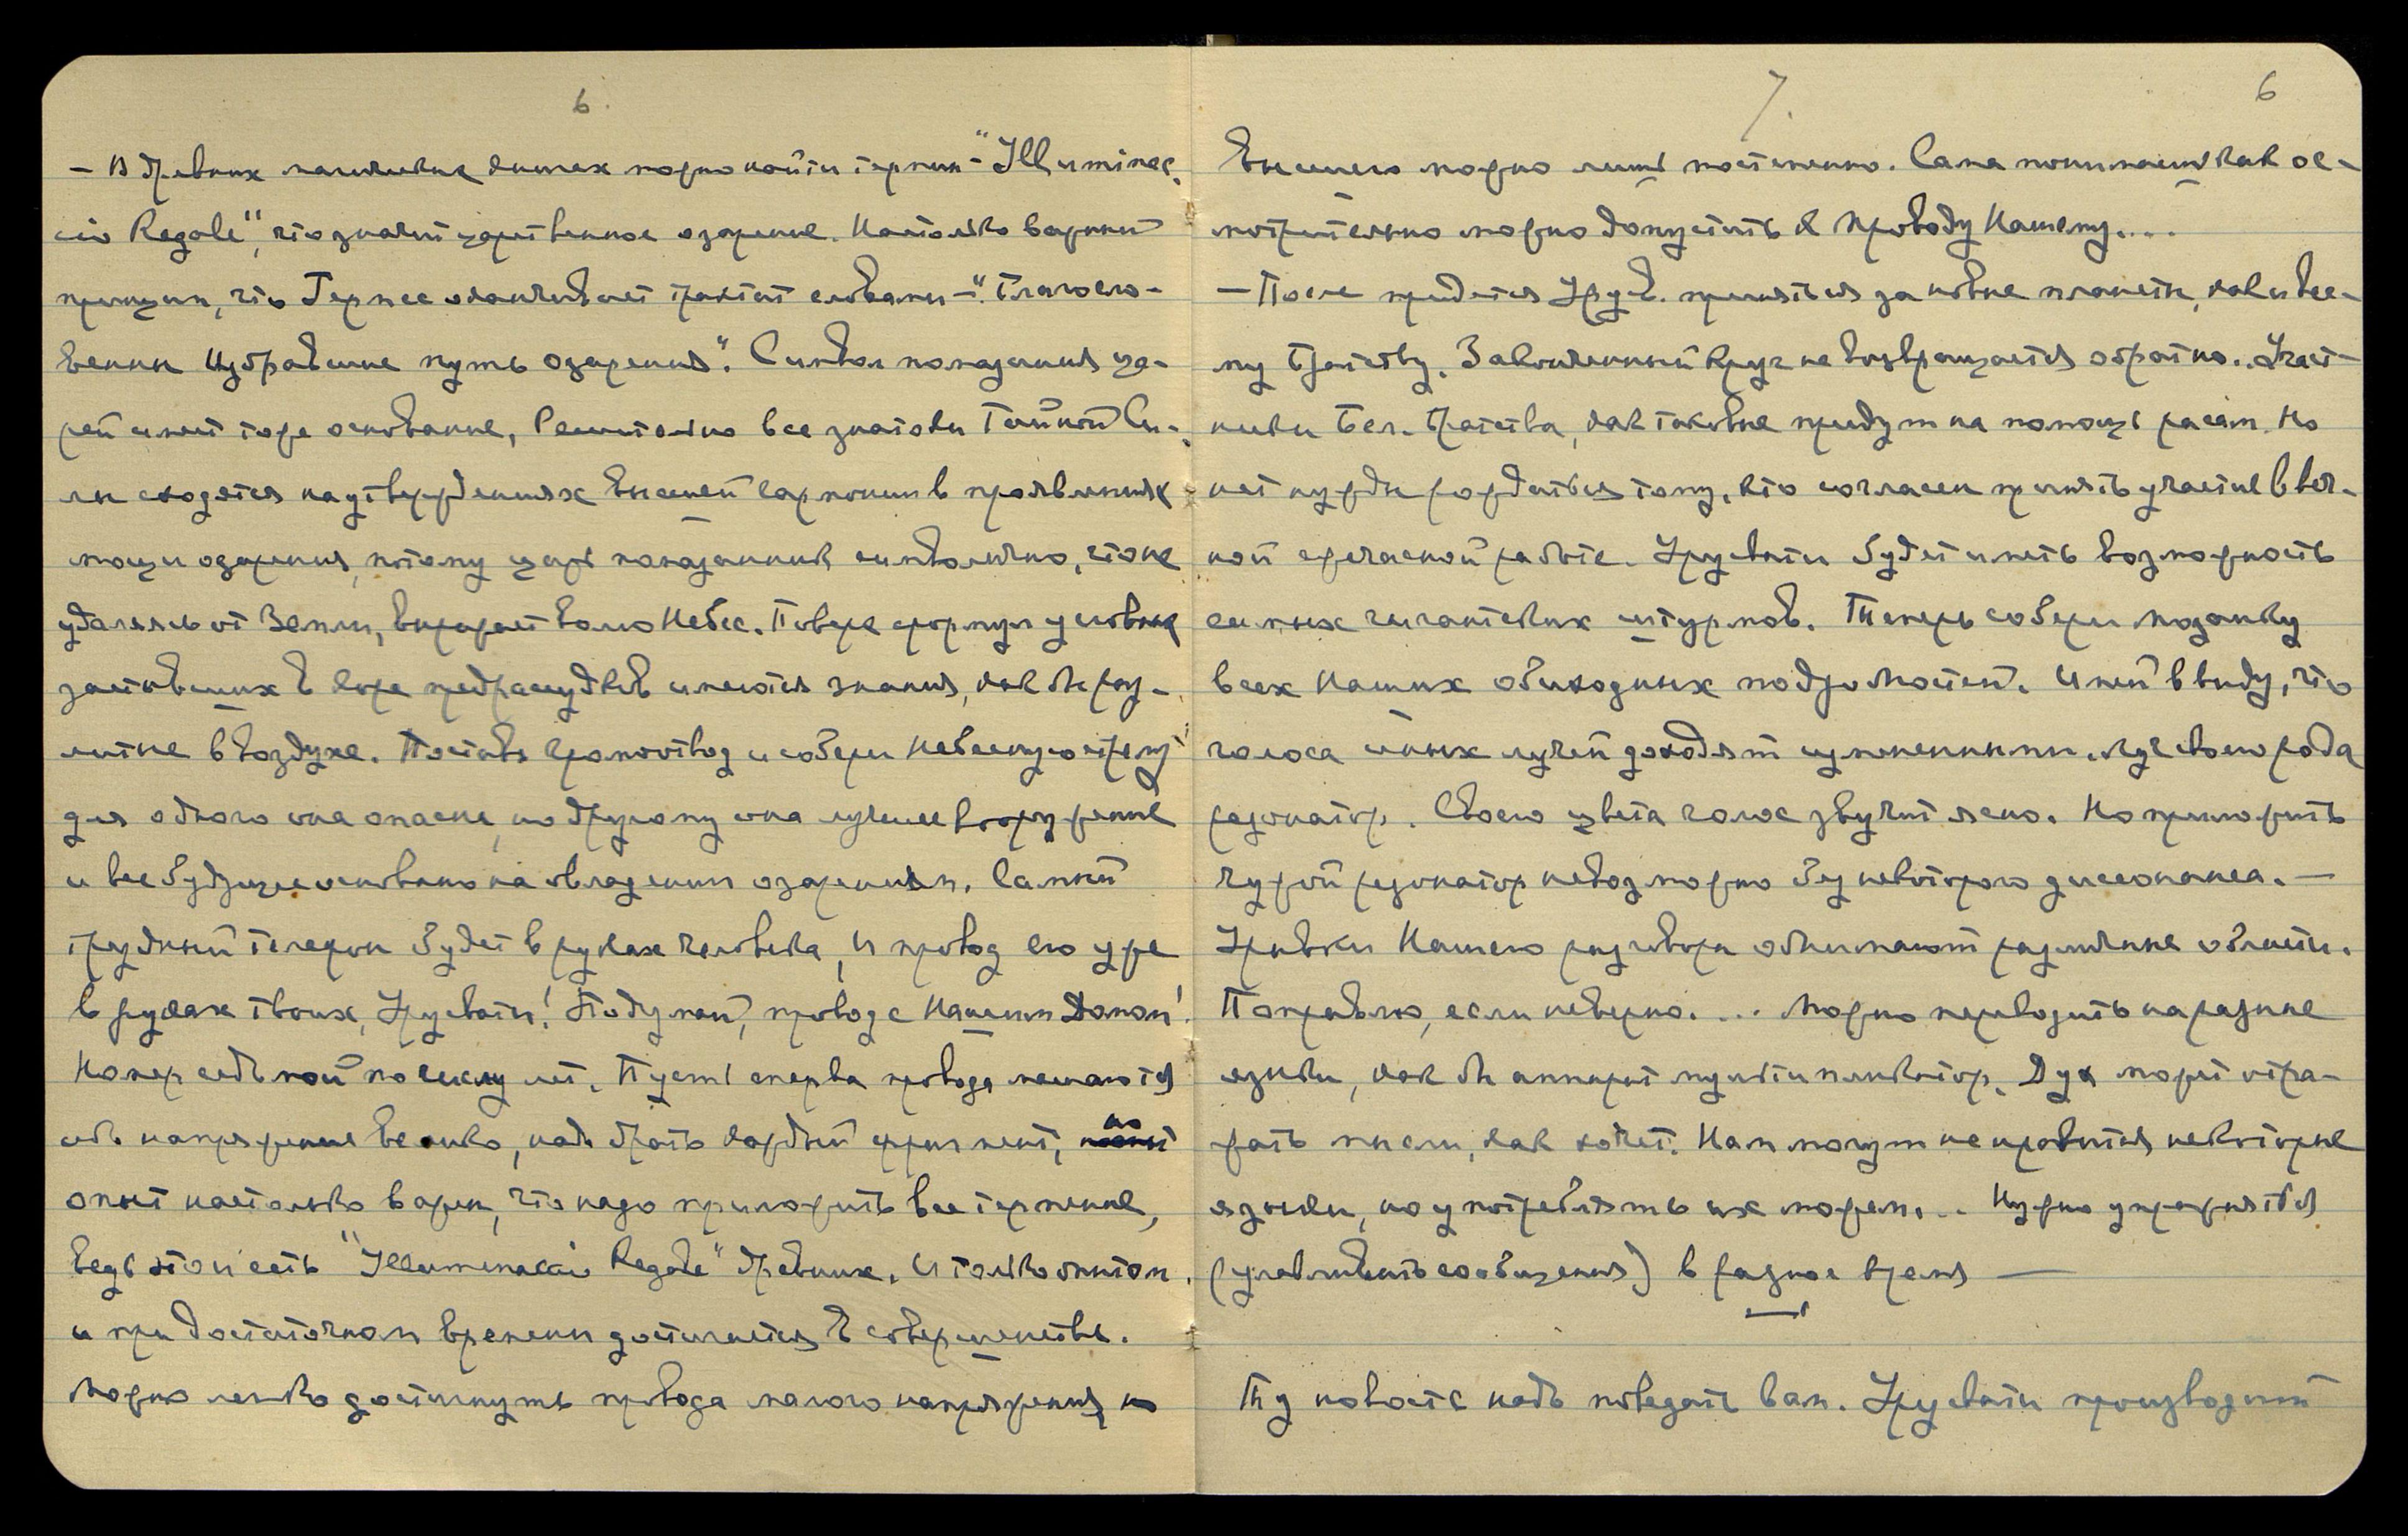 6.
— В древних магических книгах можно найти термин — "Illuminac.
cio Regale", что значит царственное озарение. Настолько важный
принцип, что Гермес оканчивает трактат словами — "Благосло-
венны Избравшие путь озарения". Символ помазания ца-
рей имеет тоже основание, Решительно все знатоки Тайной Си-
лы сходятся на утверждениях Высшей гармонии в проявлениях
мощи озарения, потому царь помазанный символично, что не
удаляясь от Земли, выражает волю Небес. Поверх формул условных
застывших в коре предрассудков имеются знания, как бы раз-
литые в воздухе. Поставь громоотвод и собери небесную стрелу
для одного она опасна, но другому она лучшее вооружение
и все будущее основано на овладении озарением. Самый
трудный телефон будет в руках человека, и провод его уже
в руках твоих, Урусвати! Подумай, провод с Нашим Домом!
Номер седьмой по числу лет. Пусть сперва провода мешаются
ибо напряжение велико, надо брать каждый фрагмент, но
опыт настолько важен, что надо приложить все терпение,
ведь это и есть "Illuminaccio Regale" древних. И только опытом
и при достаточном времени достигается в совершенстве.
Можно легко достигнуть провода малого напряжения, но
7. 6
Высшего можно лишь постепенно. Сама понимаешь как ос-
мотрительно можно допустить к Проводу Нашему....
— После придется Урусв. приняться за новые планеты, как и все-
му Братству. Законченный круг не возвращается обратно. Участ-
ники Бел. Братства, как таковые придут на помощь расам. Но
нет нужды рождаться тому, кто согласен принять участие в веч-
ной прекрасной работе. Урусвати будет иметь возможность
сильных гигантских штурмов. Теперь собери мозаику
всех Наших обиходных подробностей. Имей в виду, что
голоса иных лучей доходят измененными. Луч своего рода
резонатор. Своего цвета голос звучит ясно. Но приложить
чужой резонатор невозможно без некоторого диссонанса. —
Урывки Нашего разговора обнимают различные области.
Поправлю, если неверно. ... Можно переводить на разные
языки, как бы аппарат мультипликатор. Дух может отра-
жать мысли, как хочет. Нам могут не нравится некоторые
языки, но употреблять их можем. .. Нужно упражняться
(улавливать сообщения) в разное время —
Ту новость надо поведать вам. Урусвати производит